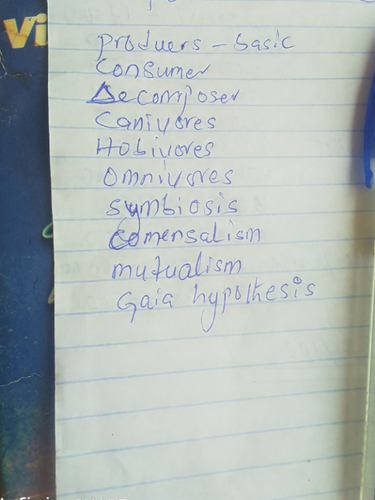 Vi
producers - basic
Consumer
Decomposer
Canivores
Hobivores
Omnivores
symbiosis
comensalism
mutualism
Gaia hypothesis